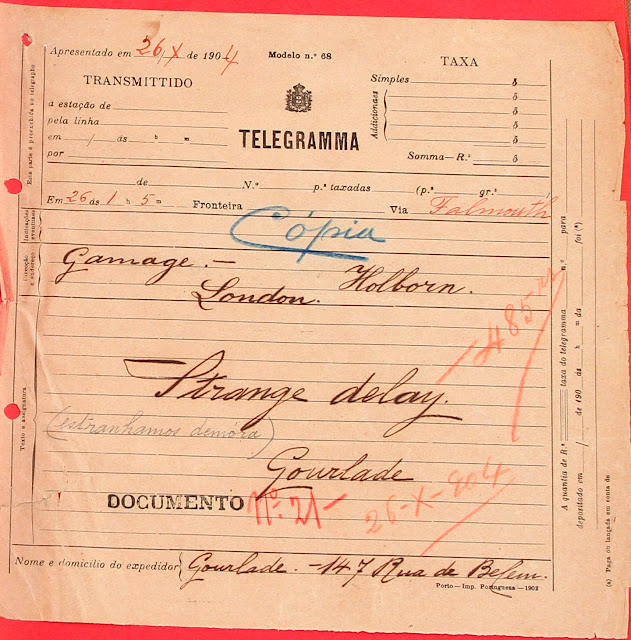 Apresentado em 26/X de 1904
Modelo n.º 68
TAXA
TRANSMITTIDO
a estação de
pela linha
em / ás h m
por
TELEGRAMMA
Simples $
Addicionaes $
$
$
$
Somma—R.ˢ $
de N.º p.ª taxadas (p.ª gr.ª )
Em 26 ás 1 h 5 m Fronteira Via Falmouth
Cópia
Gamage.—
London. Holborn.
485
Strange delay.
(estranhamos demóra)
Gourlade
DOCUMENTO Nº. 21—
26-X-904
Nome e domicilio do expedidor Gourlade. —147 Rua de Belem.
Porto—Imp. Portugueza—1902
Esta parte é preenchida no telegrapho
Indicações eventuaes
Direcção e endereço
Texto e assignatura
A quantia de R.ˢ taxa do telegramma n.º para
depositado em / de 190 ás h m da foi (*)
(*) Paga ou lançada em conta de